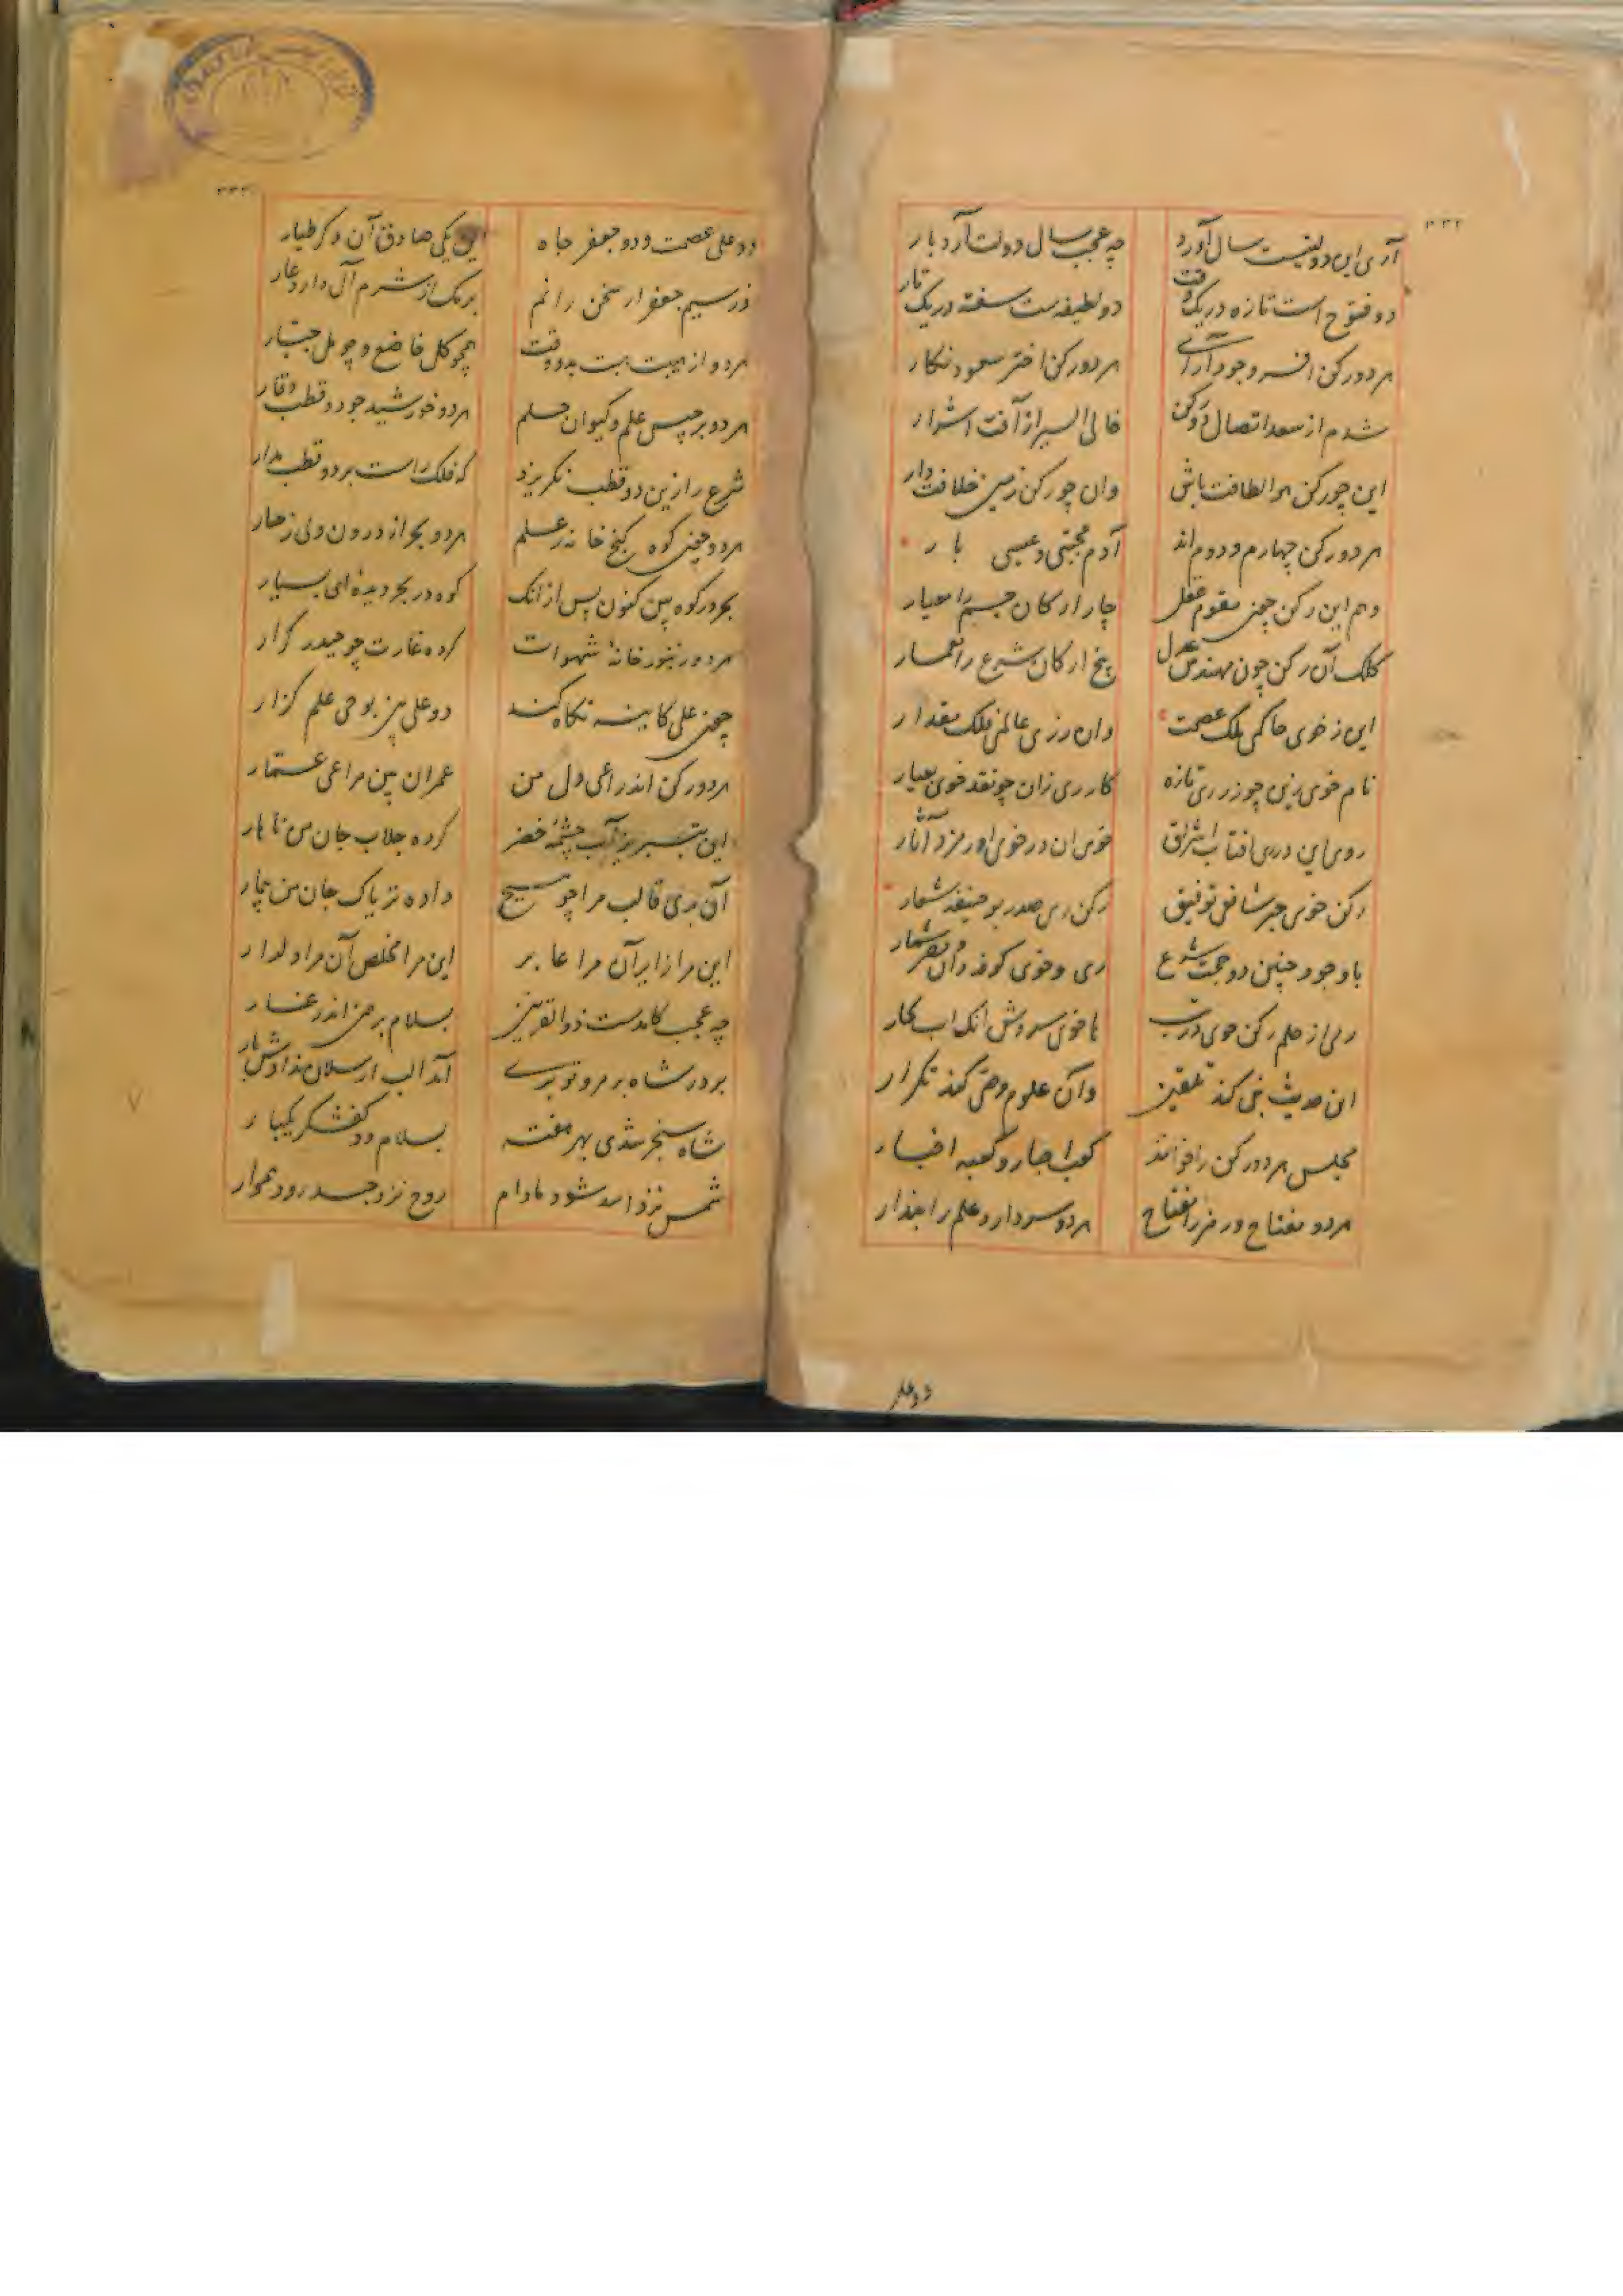 ۳۳۲
آری این دولتیست سال آورد چه عجب سال دولت آرد بار
دو فتوح است تازه در یک وقت دو لطیفه ست سفته در یک تار
هر دو رکن افسر وجود آرای هر دو رکن اختر سعود نگار
شدم از سعد اتصال دو رکن خالی السیر از آفت اشرار
این چو رکن هوا لطافت پاش وان چو رکن زمین خلافت دار
هر دو رکن چهارم و دوم اند آدم مجتبی و عیسی بار
وهم این رکن چون مقوم عقل چار ارکان جسم را معیار
کلک آن رکن چون مهندس عدل پنج ارکان شرع را معمار
این ز خوی حاکمی ملک عصمت وان ز ری عالمی فلک مقدار
نام خوی زین چو زر ری تازه کار ری زان چو نقد خوی بعیار
روی این در ری افتاب اشراق خوی ان در خوی اورمزد آثار
رکن خوی حبر شافعی توفیق رکن ری صدر بو حنیفه شعار
با وجود چنین دو حجت شرع ری و خوی کوفه دان و مصر شمار
ری از علم رکن خوی در تب با خوی سروش انک اب بحار
این حدیث نبی کند تلقین وآن علوم وصی کند تکرار
مجلس هر دو رکن را خوانند کعب احبار و کعبه اخبار
هر دو مفتاح و رمز را مفتاح هر دو سردار و علم را بندار
دو علی
۳۳۳
دو علی عصمت و دو جعفر جاه این یکی صادق آن دگر طیار
نز سیم جعفر ار سخن رانم برمک از شرم آل دارد عار
هر دو از هیبت بدو وقت همچو گل خاضع و چو مل جبار
هر دو برجیس علم و کیوان حلم هر دو خورشید جود و قطب وقار
شرع را زین دو قطب نگریزد که فلک راست بر دو قطب مدار
هر دو چون کوه گنج خانه ز علم هر دو بحر از درون ولی زخار
بحر در کوه بین کنون پس از انک کوه در بحر دیدهٔ ای بسیار
هر دو زنبور خانهٔ شهوات کرده غارت چو حیدر کرار
چون علی کاینه نگاه کند دو علی بین بوحی علم گزار
هر دو رکن اند راعی دل من عمران بین مراعی عمار
این بتبریز آب چشمهٔ خضر کرده جلاب جان من ناهار
آن بری قالب مرا چو مسیح داده تریاک جان من بیمار
این مرا زایر آن مرا عابر این مرا مخلص آن مرا دلدار
چه عجب کامدست ذو القرنین بسلام برهمن اندر غار
بر در شاه بر مرو تو بری آمد الب ارسلان بدادش بار
شاه سنجر شدی بهر هفته بسلام دو کفشگر یکبار
شمس نزد اسد شود مادام روح نزد جسد رود هموار